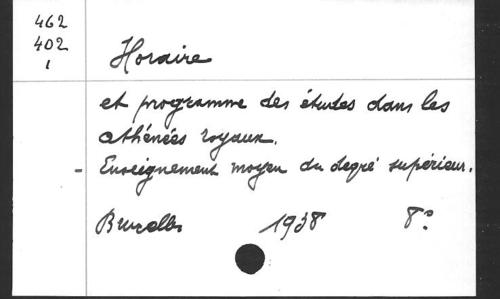 462
402
1
Horaire
et programme des études dans les
athénées royaux.
- Enseignement moyen du degré supérieur.
Bruxelles 1938 8°